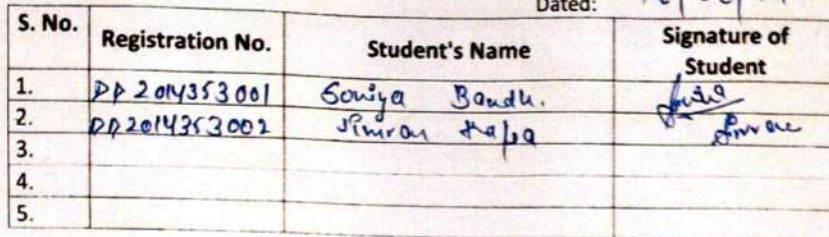 Dated:
S. No. Registration No. Student's Name Signature of Student
1. DP2014353001 Soniya Bandh.
2. DP2014353002 Simran
3.
4.
5.